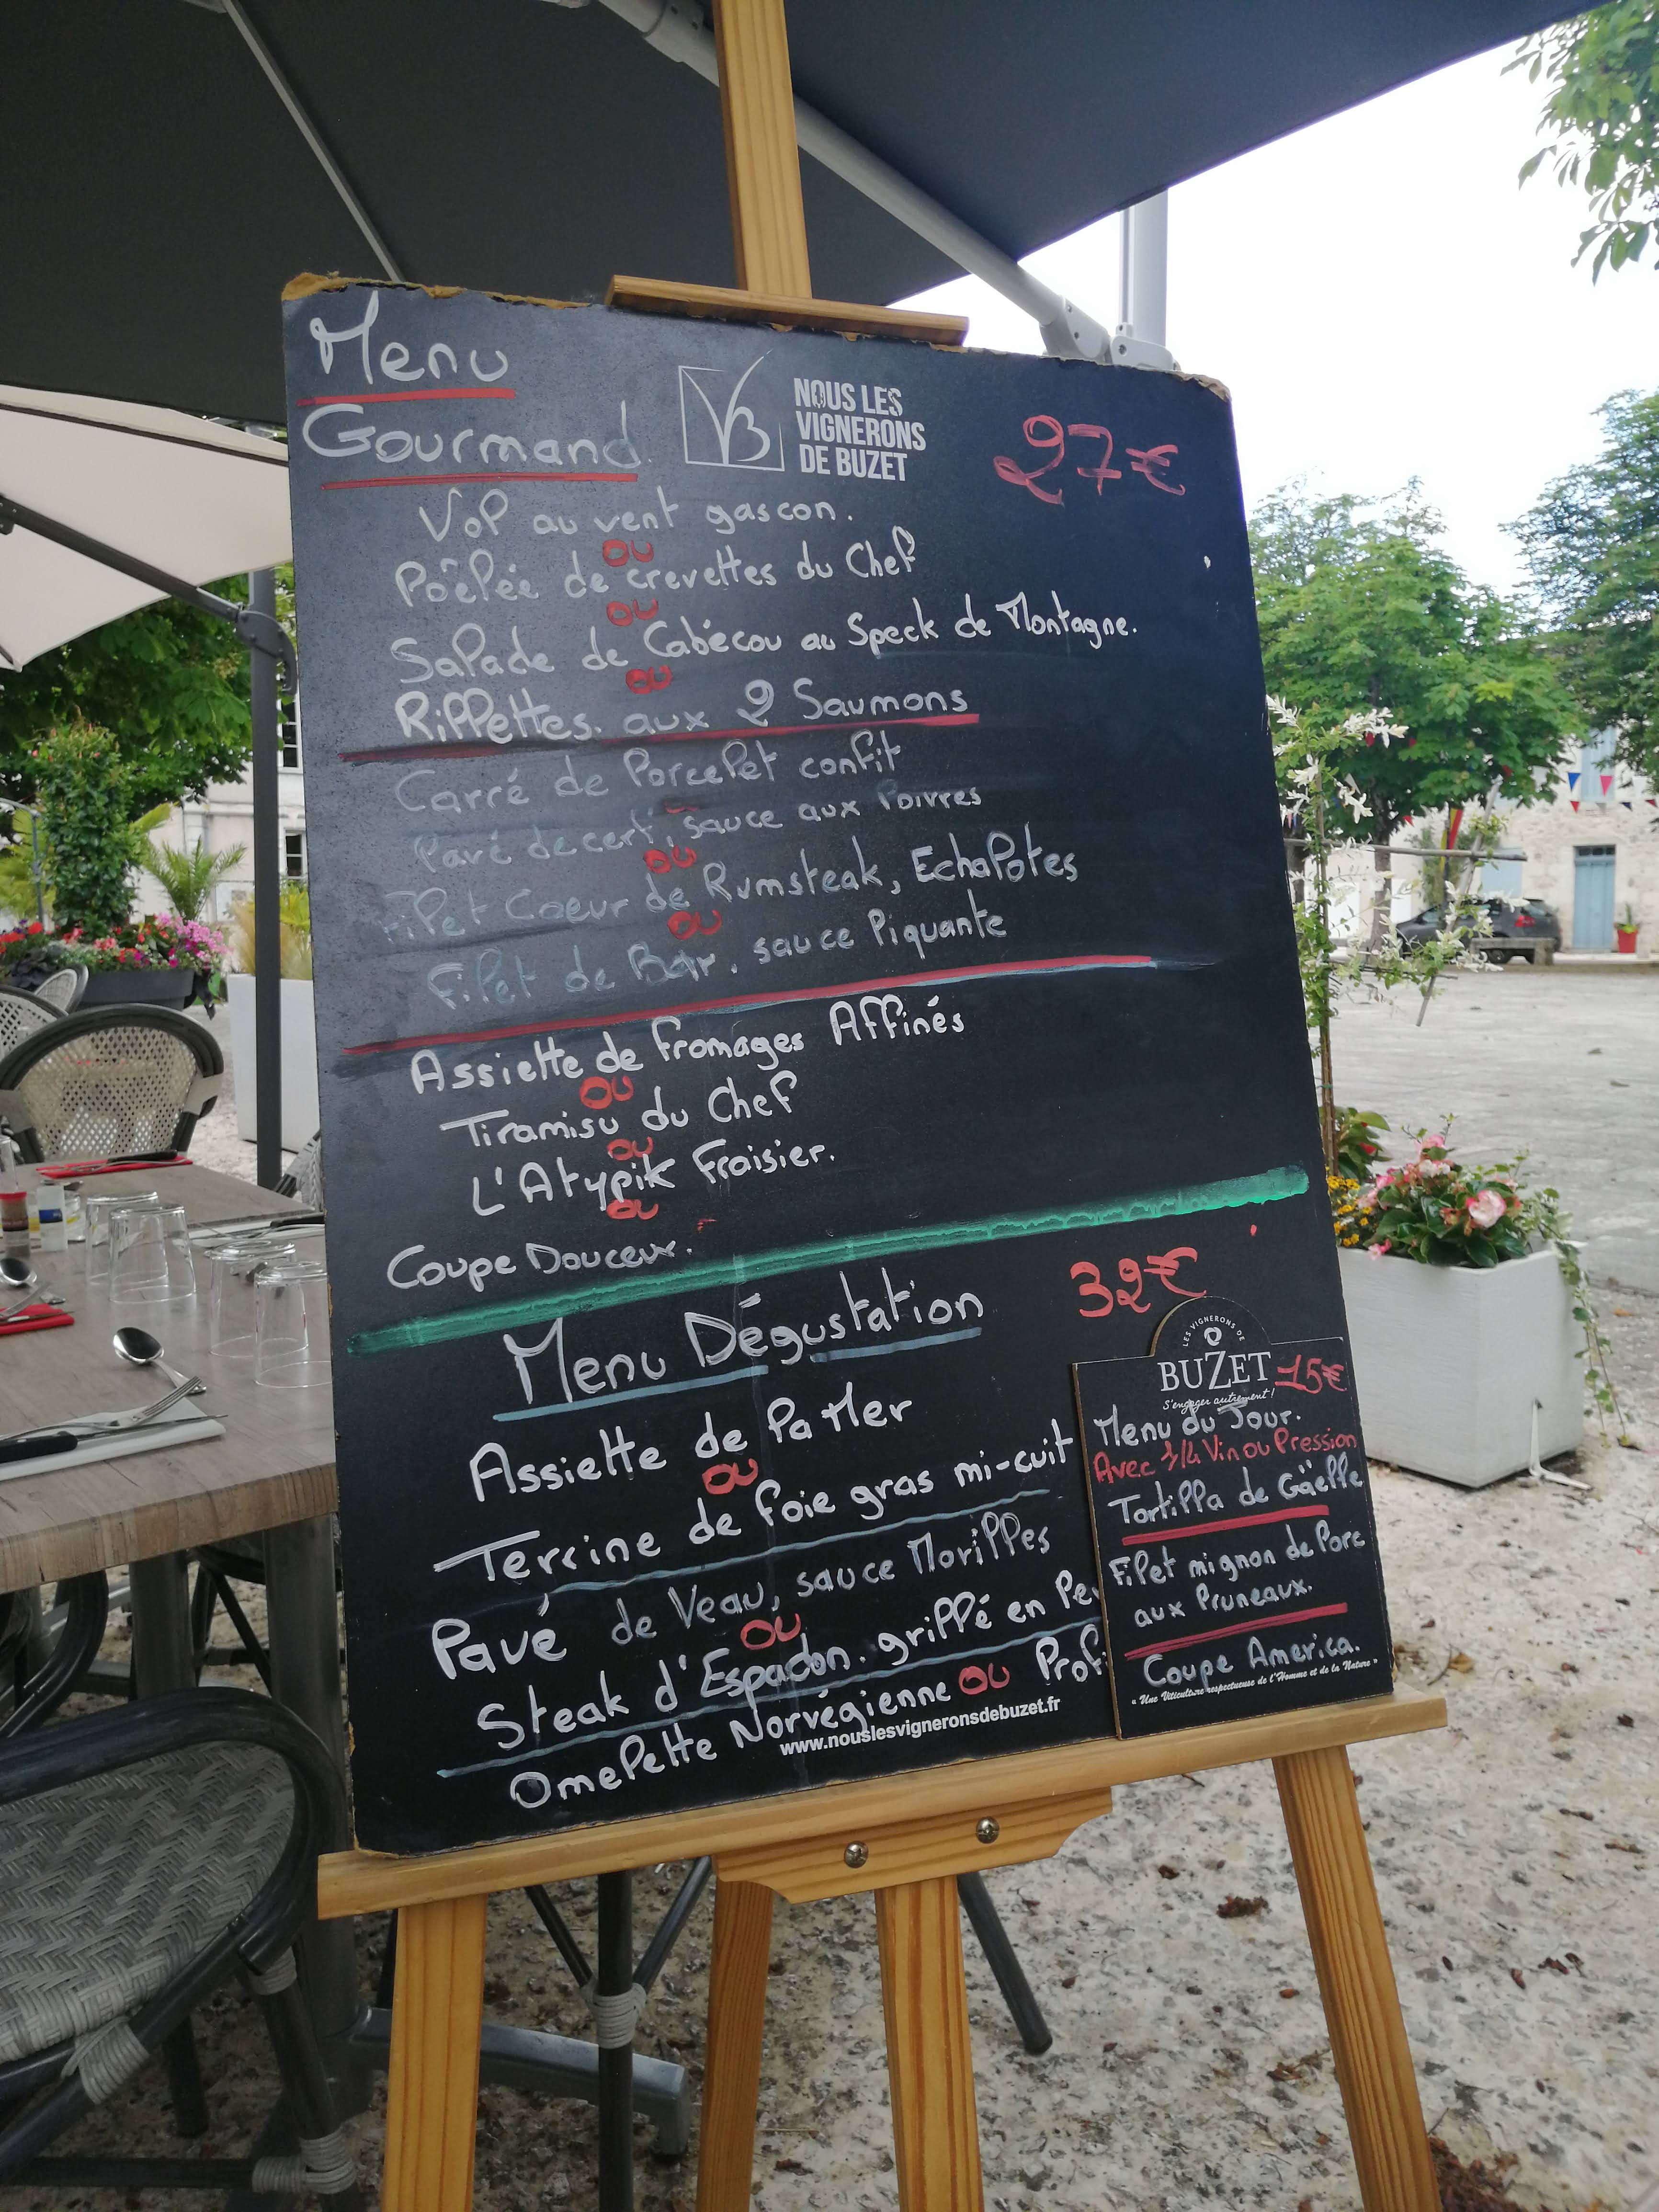 Menu
Gourmand.
NOUS LES
VIGNERONS
DE BUZET
27€
Vol au vent gascon.
ou
Poêlée de crevettes du Chef
ou
Salade de Cabécou au Speck de Montagne.
ou
Rillettes. aux 2 Saumons
Carré de Porcelet confit
Pavé de cerf, sauce aux Poivres
ou
Filet Coeur de Rumsteak, Echalotes
ou
Filet de Bar, sauce Piquante
Assiette de fromages Affinés
ou
Tiramisu du Chef
ou
L'Atypik Fraisier.
ou
Coupe Douceur.
Menu Dégustation
32€
Assiette de
ou
Terrine de foie gras mi-cuit
Pavé de Veau, sauce Morilles
ou
Steak d'Espadon. grillé en
Omelette Norvégienne ou
www.nouslesvigneronsdebuzet.fr
LES VIGNERONS DE
BUZET
S'engager autrement !
15€
Menu du Jour.
Avec 1/4 Vin ou Pression
Tortilla de Gaëlle
Filet mignon de Porc
aux Pruneaux.
Coupe America.
"Une Viticulture respectueuse de l'Homme et de la Nature"